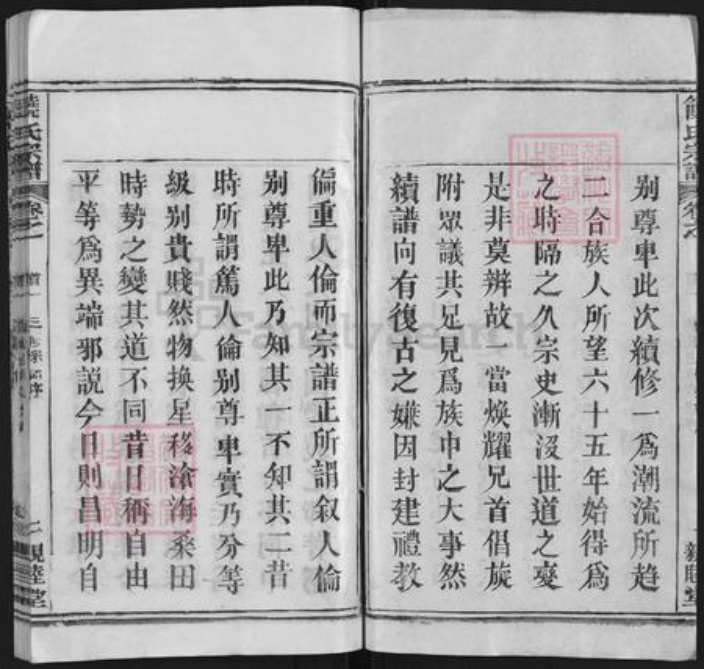 饒氏宗譜 卷之 親睦堂
別尊卑此次續修一為潮流所趋
二合族人所望六十五年始得為
之時隔之久宗史漸沒世道之变
是非莫辨故 當煥耀兄首倡旋
附眾議其足見爲族中之大事然
續譜向有復古之嫌因封建禮教
偏重人倫而宗譜正所謂叙人倫
别尊卑此乃知其一不知其二昔
時所謂篤人倫别尊卑實乃分等
級别貴賤然物换星移滄海桑田
時勢之變其道不同昔日稱自由
平等爲異端邪説今日則昌明自
饒氏宗譜 卷之一 首 序 二 親睦堂
FamilySearch